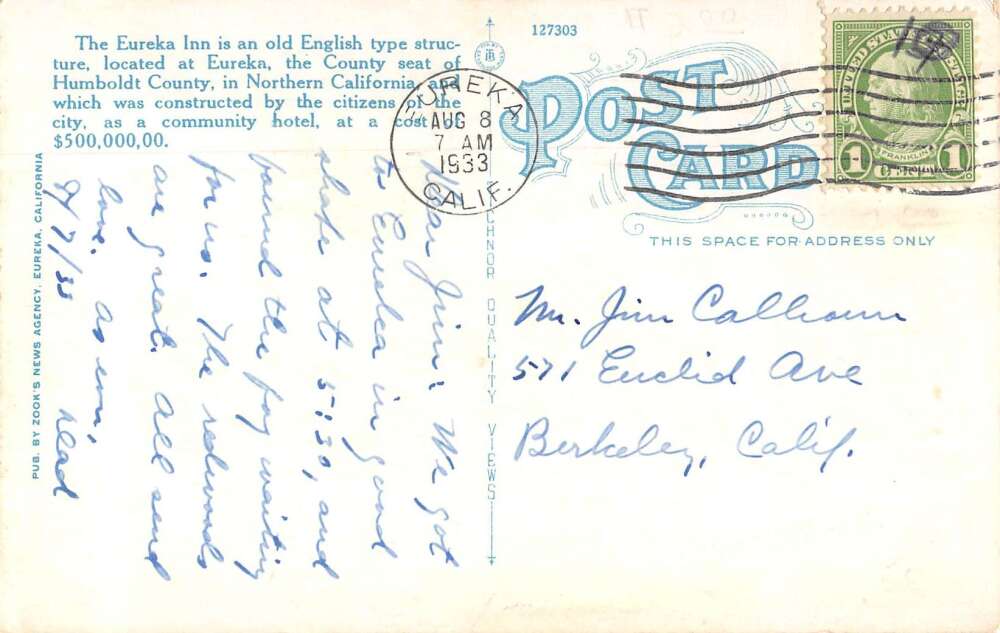 The Eureka Inn is an old English type struc-
ture, located at Eureka, the County seat of
Humboldt County, in Northern California, and
which was constructed by the citizens of the
city, as a community hotel, at a cost of
$500,000,00.
127303
POST
CARD
THIS SPACE FOR ADDRESS ONLY
EUREKA
AUG 8
7 AM
1933
CALIF.
UNITED STATES POSTAGE
FRANKLIN
1 1
PUB. BY ZOOK'S NEWS AGENCY, EUREKA, CALIFORNIA
TECHNOR QUALITY VIEWS
Dear Jim: We got
to Eureka in good
shape at 5:30, and
found the fog waiting
for us. The redwoods
are great. All send
love. as ever,
8/7/33
Mr. Jim Calhoun
571 Euclid Ave
Berkeley, Calif.